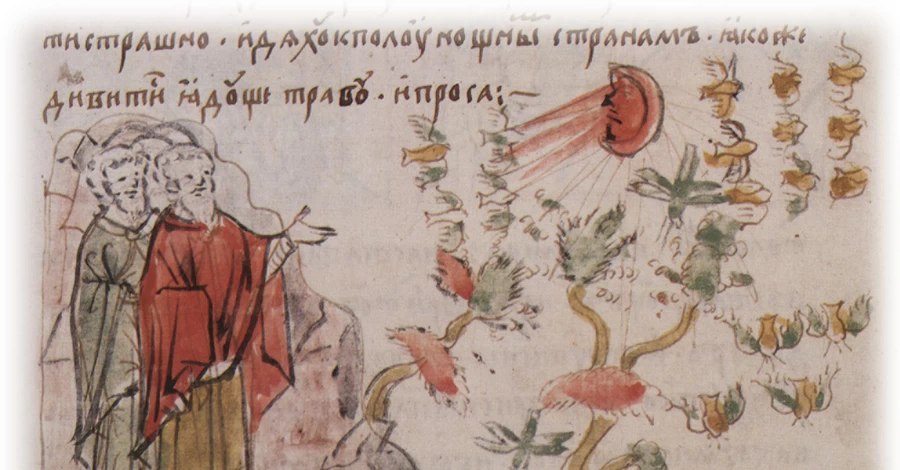 ти страшно · и҆ дꙗ́хꙋ к полоу́нощны странамъ · ꙗ҆коже
дивити и҆ до́ше травꙋ · и҆ проса;